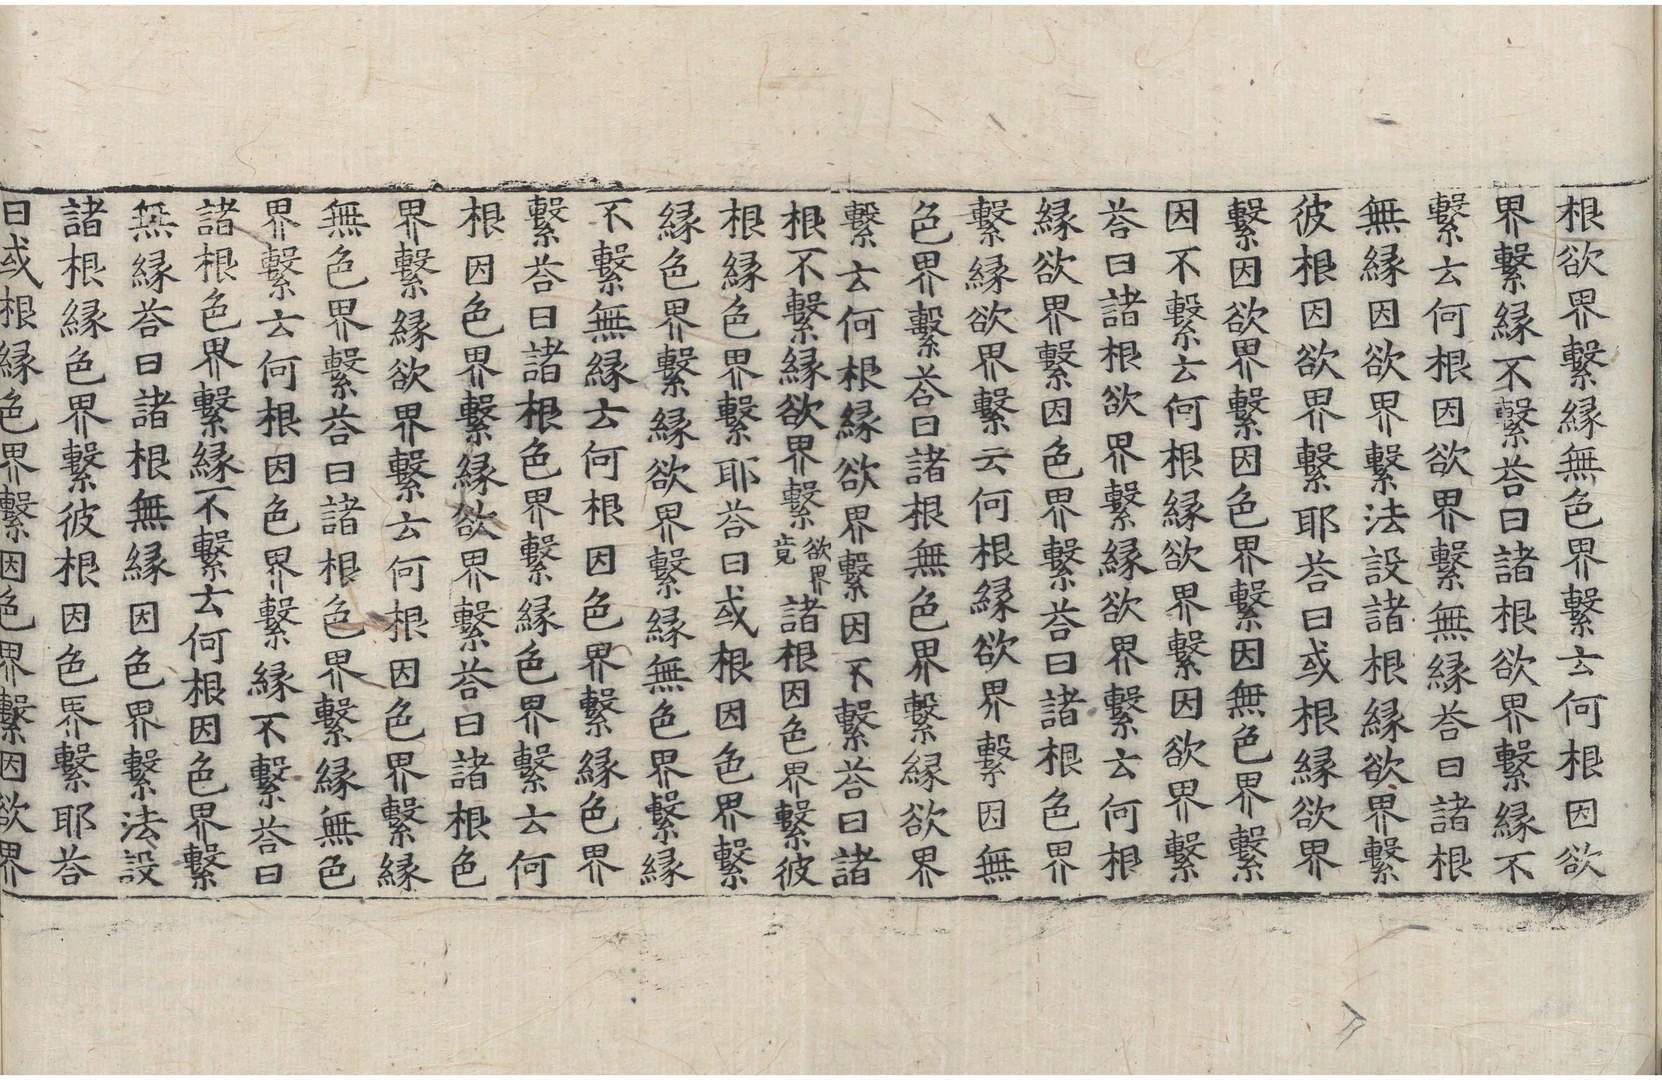 根欲界繫縁無色界繫云何根因欲
界繫縁不繫荅曰諸根欲界繫縁不
繫云何根因欲界繫無縁荅曰諸根
無縁因欲界繫法設諸根縁欲界繫
彼根因欲界繫耶荅曰或根縁欲界
繫因欲界繫因色界繫因無色界繫
因不繫云何根縁欲界繫因欲界繫
荅曰諸根欲界繫縁欲界繫云何根
縁欲界繫因色界繫荅曰諸根色界
繫縁欲界繫云何根縁欲界繫因無
色界繫荅曰諸根無色界繫縁欲界
繫云何根縁欲界繫因不繫荅曰諸
根不繫縁欲界繫欲界竟諸根因色界繫彼
根縁色界繫耶荅曰或根因色界繫
縁色界繫縁欲界繫縁無色界繫縁
不繫無縁云何根因色界繫縁色界
繫荅曰諸根色界繫縁色界繫云何
根因色界繫縁欲界繫荅曰諸根色
界繫縁欲界繫云何根因色界繫縁
無色界繫荅曰諸根色界繫縁無色
界繫云何根因色界繫縁不繫荅曰
諸根色界繫縁不繫云何根因色界繫
無縁荅曰諸根無縁因色界繫法設
諸根縁色界繫彼根因色界繫耶荅
曰或根縁色界繫因色界繫因欲界